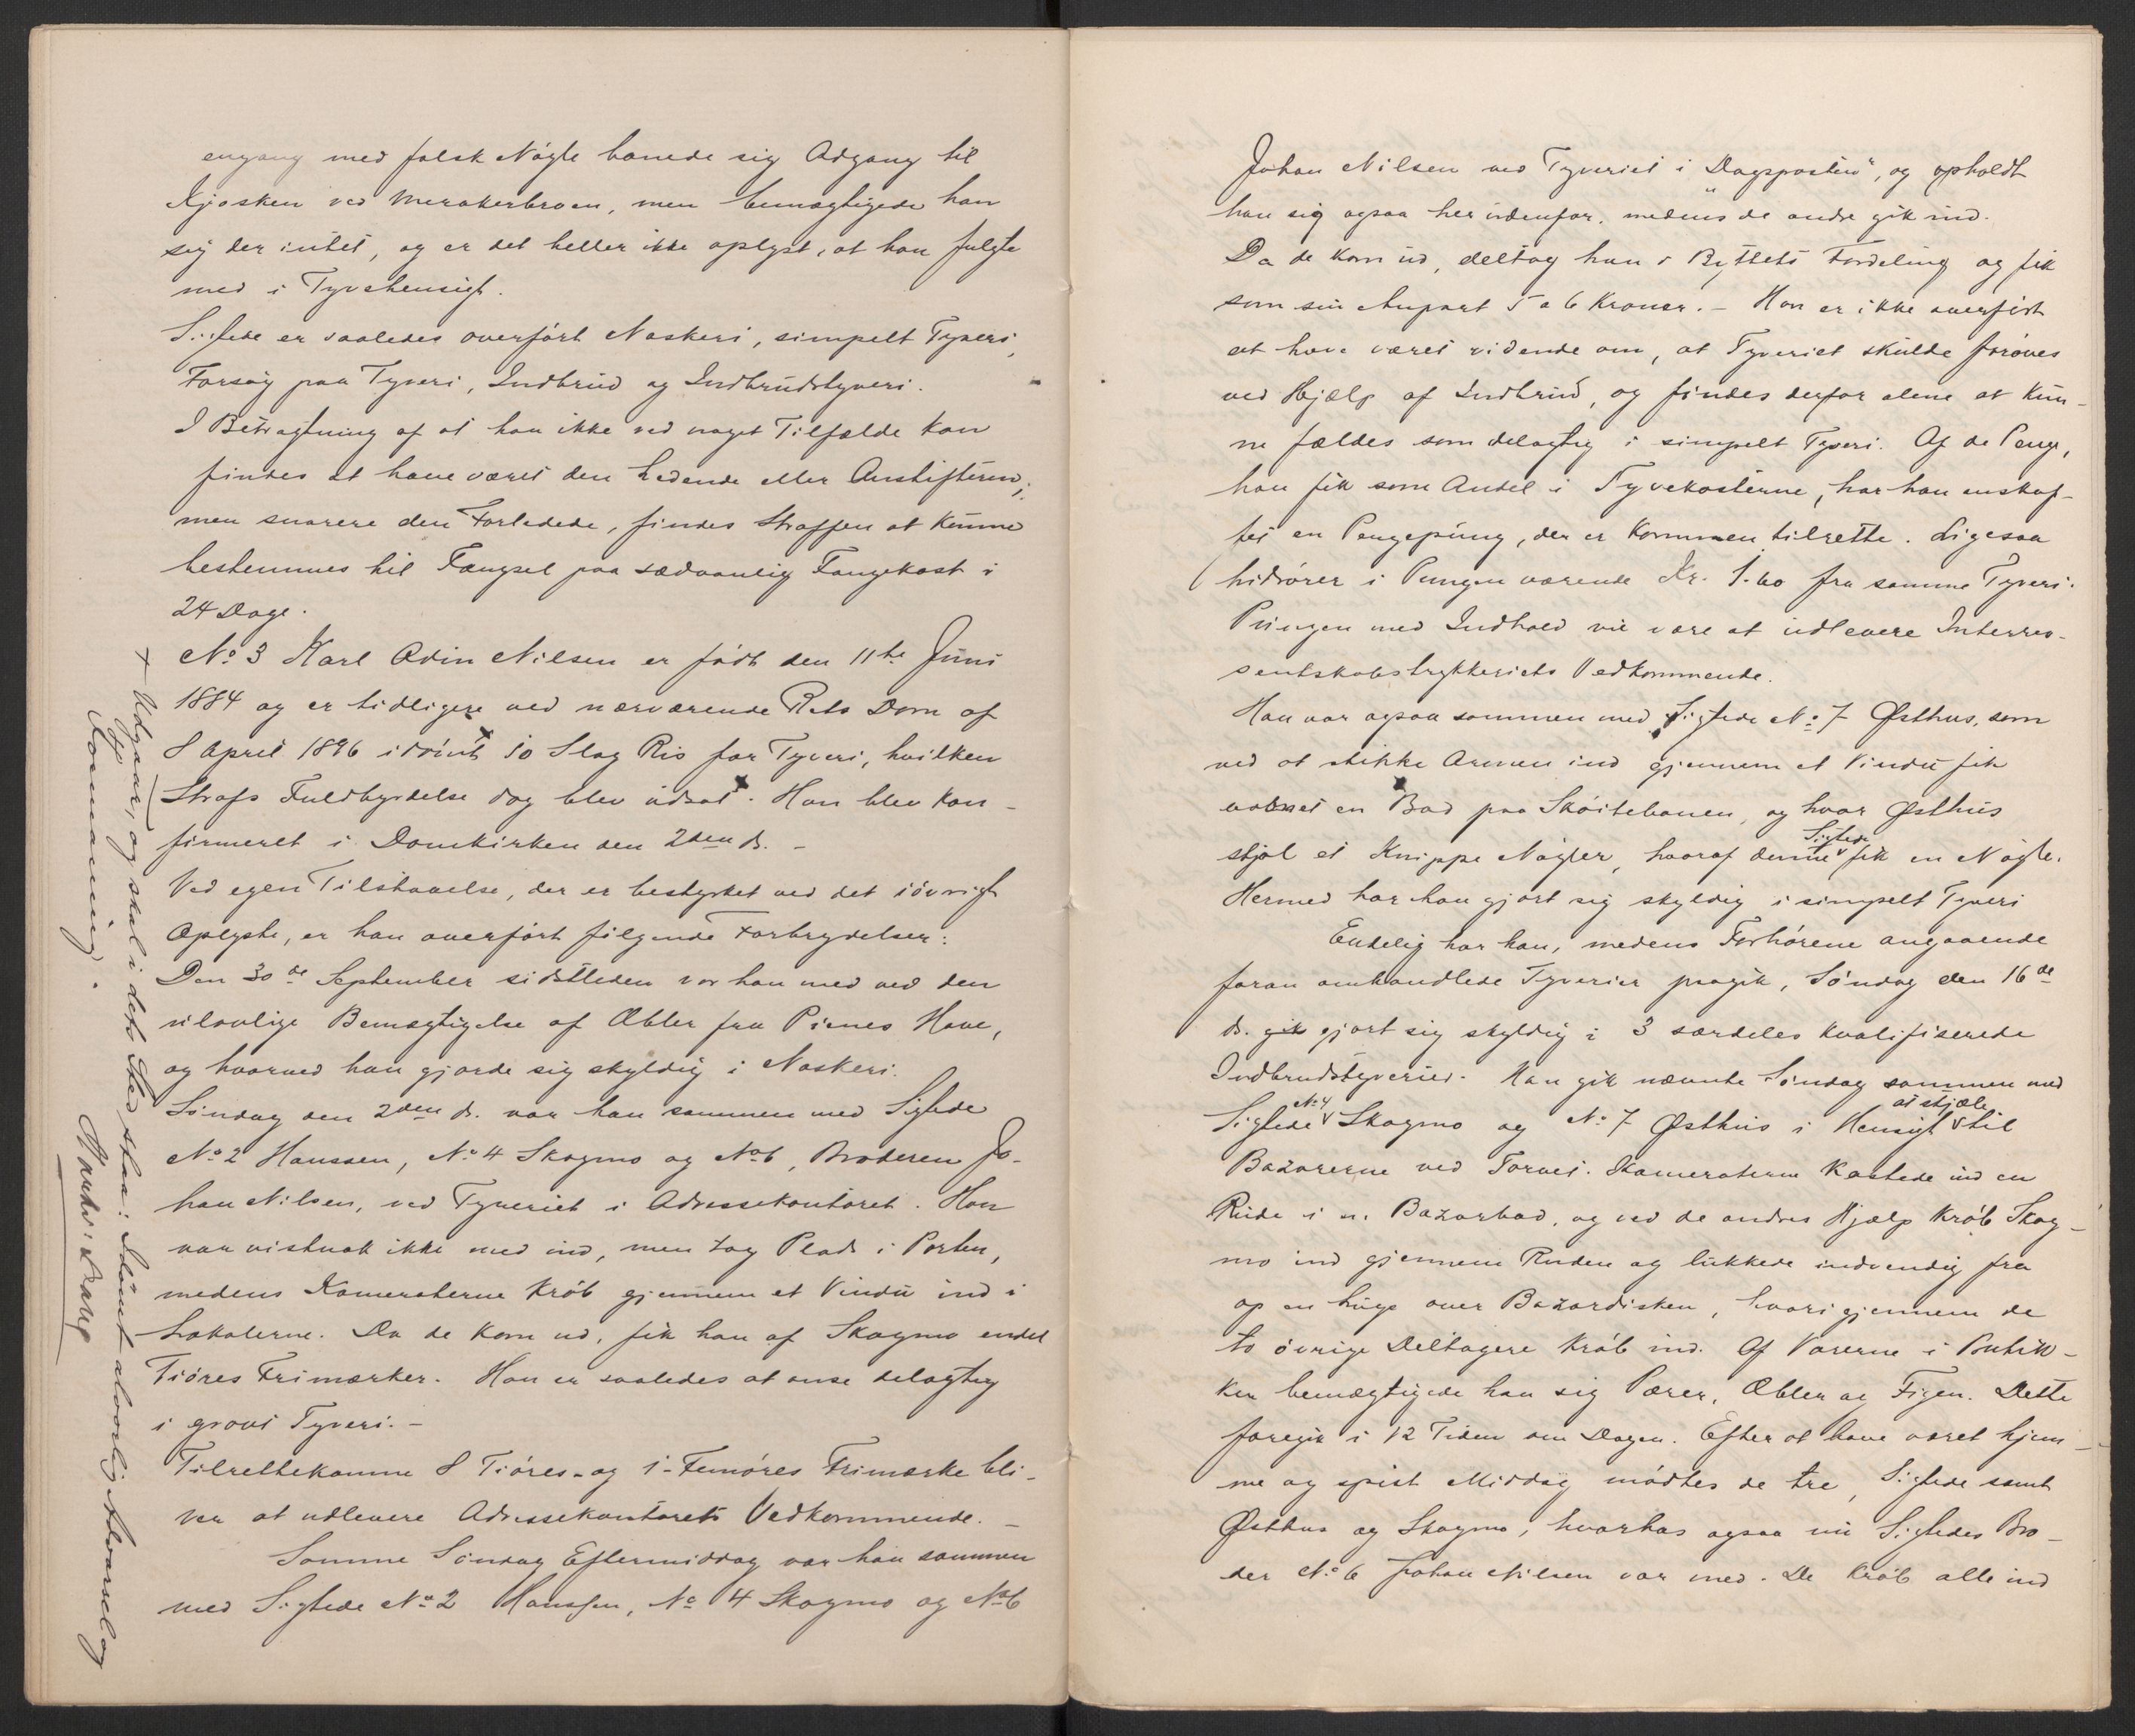 engang med falsk Nøgle banede sig Adgang til
Kjosken ved Merakerbroen, men bemægtigede han
sig der intet, og er det heller ikke oplyst, at han fulgte
med i Tyvehensigt.
Sigtede er saaledes overført Naskeri, simpelt Tyveri,
Forsøg paa Tyveri, Indbrud og Indbrudstyveri.
I Betragtning af at han ikke ved noget Tilfælde kan
findes at have været den Ledende eller Anstifteren,
men snarere den Forledede, findes Straffen at kunne
bestemmes til Fængsel paa sædvanlig Fangekost i
24 Dage.
No 3 Karl Odin Nilsen er født den 11te Juni
1884 og er tidligere ved nærværende Rets Dom af
8 April 1896 idømt 10 Slag Ris for Tyveri, hvilken
Strafs Fuldbyrdelse dog blev udsat. Han blev kon-
firmeret i Domkirken den 2den ds. -
Ved egen Tilstaaelse, der er bestyrket ved det iøvrigt
Oplyste, er han overført følgende Forbrydelser:
Den 30de September sidstleden var han med ved den
ulovlige Bemægtigelse af Æbler fra Pienes Have,
og hvorved han gjorde sig skyldig i Naskeri.
Søndag den 2den ds. var han sammen med Sigtede
No 2 Hanssen, No 4 Skogmo og No 6, Broderen Jo-
han Nilsen, ved Tyveriet i Adressekontoret. Han
var vistnok ikke med ind, men tog Plads i Porten,
medens Kameraterne krøb gjennem et Vindu ind i
Lokalerne. Da de kom ud, fik han af Skogmo endel
Tiøres Frimærker. Han er saaledes at anse delagtig
i grovt Tyveri. -
Tilrettekomne 8 Tiøres- og 1- Femøres Frimærke bli-
ver at udlevere Adressekontorets Vedkommende. -
Samme Søndag Eftermiddag var han sammen
med Sigtede No 2 Hanssen, No 4 Skogmo og No 6
x Udgaar, og skal i dets Sted staa: Idømt alvorlig Advarsel og
Formaning.
Johan Nilsen ved Tyveriet i "Dagsposten", og opholdt
han sig ogsaa her udenfor, medens de andre gik ind.
Da de kom ud, deltog han i Byttets Fordeling og fik
som sin Anpart 5 a 6 Kroner. - Han er ikke overført
at have været vidende om, at Tyveriet skulde forøves
ved Hjælp af Indbrud, og findes derfor alene at kun-
ne fældes som delagtig i simpelt Tyveri. Af de Penge,
han fik som Andel i Tyvekosterne, har han anskaf-
fet en Pengepung, der er kommen tilrette. Ligesaa
hidrører i Pungen værende Kr. 1.60 fra samme Tyveri.
Pungen med Indhold vil være at udlevere Interres-
sentskabstrykkeriets Vedkommende.
Han var ogsaa sammen med Sigtede No 7 Østhus, som
ved at stikke Armen ind gjennem et Vindu fik
aabnet en Bod paa Skøitebanen, og hvor Østhus
stjal et Knippe Nøgler, hvoraf denne Sigtede fik en Nøgle.
Hermed har han gjort sig skyldig i simpelt Tyveri
Endelig har han, medens Forhørene angaaende
foran omhandlede Tyverier pragik, Søndag den 16de
ds. gik gjort sig skyldig i 3 særdeles kvalifiserede
Indbrudstyverier. Han gik nævnte Søndag sammen med
Sigtede No 4 Skogmo og No 7 Østhus i Hensigt at stjæle til
Bazarerne ved Torvet. Kameraterne kastede ind en
Rude i en Bazarbod, og ved de andres Hjælp krøb Skog-
mo ind gjennem Ruden og lukkede indvendig fra
op en Luge over Bazardisken, hvorigjennem de
to øvrige Deltagere krøb ind. Af Varerne i Butik-
ken bemægtigede han sig Pærer, Æbler og Figen. Dette
foregik i 12 Tiden om Dagen. Efter at have været hjem-
me og spist Middag mødtes de tre, Sigtede samt
Østhus og Skogmo, hvorhos ogsaa nu Sigtedes Bro-
der No 6 Johan Nilsen var med. De krøb alle ind